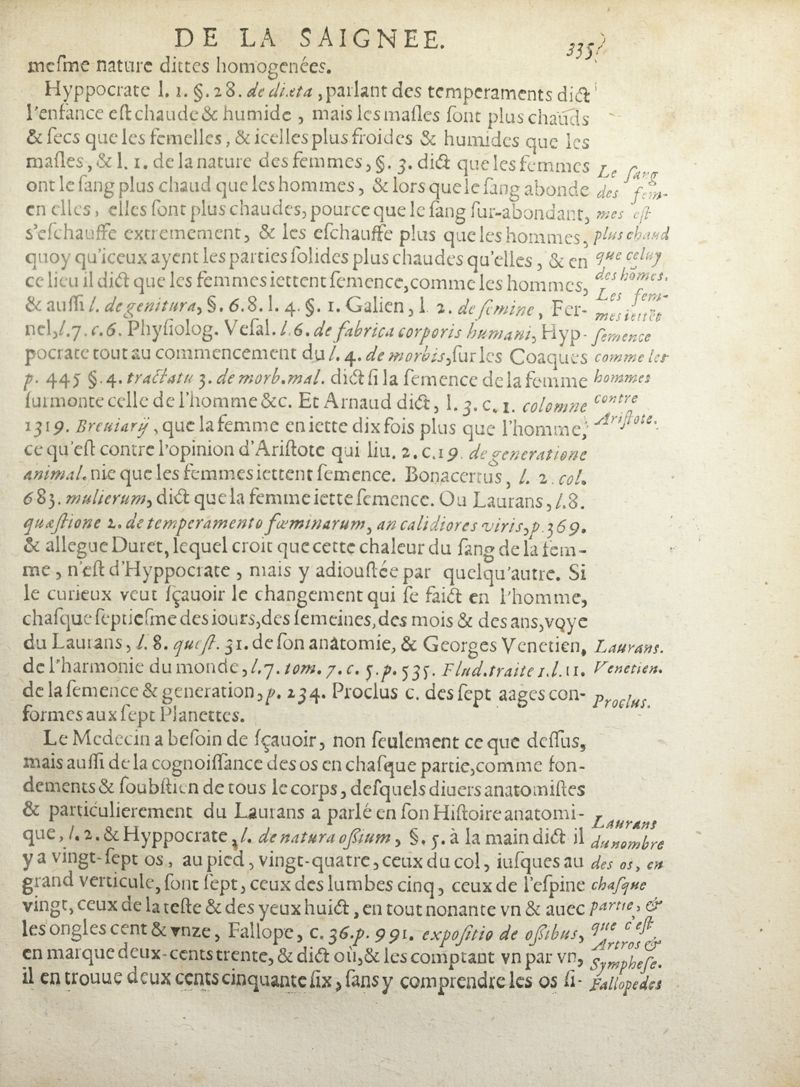 DE LA SAIGNEE. 335
mesme nature dittes homogenées.
Hyppocrate l. 1. §. 28. de diæta, parlant des temperaments dict
l'enfance est chaude & humide, mais les masles sont plus chauds
& secs que les femelles, & icelles plus froides & humides que les
masles, & l. 1. de la nature des femmes, §. 3. dict que les femmes
ont le sang plus chaud que les hommes, & lors que le sang abonde
en elles, elles sont plus chaudes, pource que le sang sur-abondant,
s'eschauffe extremement, & les eschauffe plus que les hommes,
quoy qu'iceux ayent les parties solides plus chaudes qu'elles, & en
ce lieu il dict que les femmes iettent semence, comme les hommes,
& aussi l. de genitura, §. 6. 8. l. 4. §. 1. Galien, l. 2. de semine, Fer-
nel, l. 7. c. 6. Physiolog. Vesal. l. 6. de fabrica corporis humani, Hyp-
pocrate tout au commencement du l. 4. de morbis, sur les Coaques
p. 445 §. 4. tractatu 3. de morb. mal. dict si la semence de la femme
surmonte celle de l'homme &c. Et Arnaud dict, l. 3. c. 1. colomne
1319. Breuiarij, que la femme en iette dix fois plus que l'homme,
ce qu'est contre l'opinion d'Aristote qui liu. 2. c. 19. de generatione
animal. nie que les femmes iettent semence. Bonacertus, l. 2. col.
683. mulierum, dict que la femme iette semence. Ou Laurans, l. 8.
quæstione 2. de temperamento fœminarum, an calidiores viris, p. 369.
& allegue Duret, lequel croit que cette chaleur du sang de la fem-
me, n'est d'Hyppocrate, mais y adioustée par quelqu'autre. Si
le curieux veut sçauoir le changement qui se faict en l'homme,
chasque septiesme des iours, des semeines, des mois & des ans, voye
du Laurans, l. 8. quest. 31. de son anatomie, & Georges Venetien,
de l'harmonie du monde, l. 7. tom. 7. c. 5. p. 535. Flud. traite 1. l. 11.
de la semence & generation, p. 234. Proclus c. des sept aages con-
formes aux sept Planettes.
Le Medecin a besoin de sçauoir, non seulement ce que dessus,
mais aussi de la cognoissance des os en chasque partie, comme fon-
dements & soubstien de tous le corps, desquels diuers anatomistes
& particulierement du Laurans a parlé en son Histoire anatomi-
que, l. 2. & Hyppocrate, l. de natura ossium, §. 5. à la main dict il
y a vingt-sept os, au pied, vingt-quatre, ceux du col, iusques au
grand verticule, sont sept, ceux des lumbes cinq, ceux de l'espine
vingt, ceux de la teste & des yeux huict, en tout nonante vn & auec
les ongles cent & vnze, Fallope, c. 36. p. 991. expositio de ossibus,
en marque deux-cents trente, & dict où, & les comptant vn par vn,
il en trouue deux cents cinquante six, sans y comprendre les os si-
Le sang
des fem-
mes est
plus chaud
que celuy
des homes.
Les fem-
mes iettēt
semence
comme les
hommes
contre
Aristote.
Laurans.
Venetien.
Proclus.
Laurans
du nombre
des os, en
chasque
partie, &
que c'est
Artros &
Symphese.
Fallope des